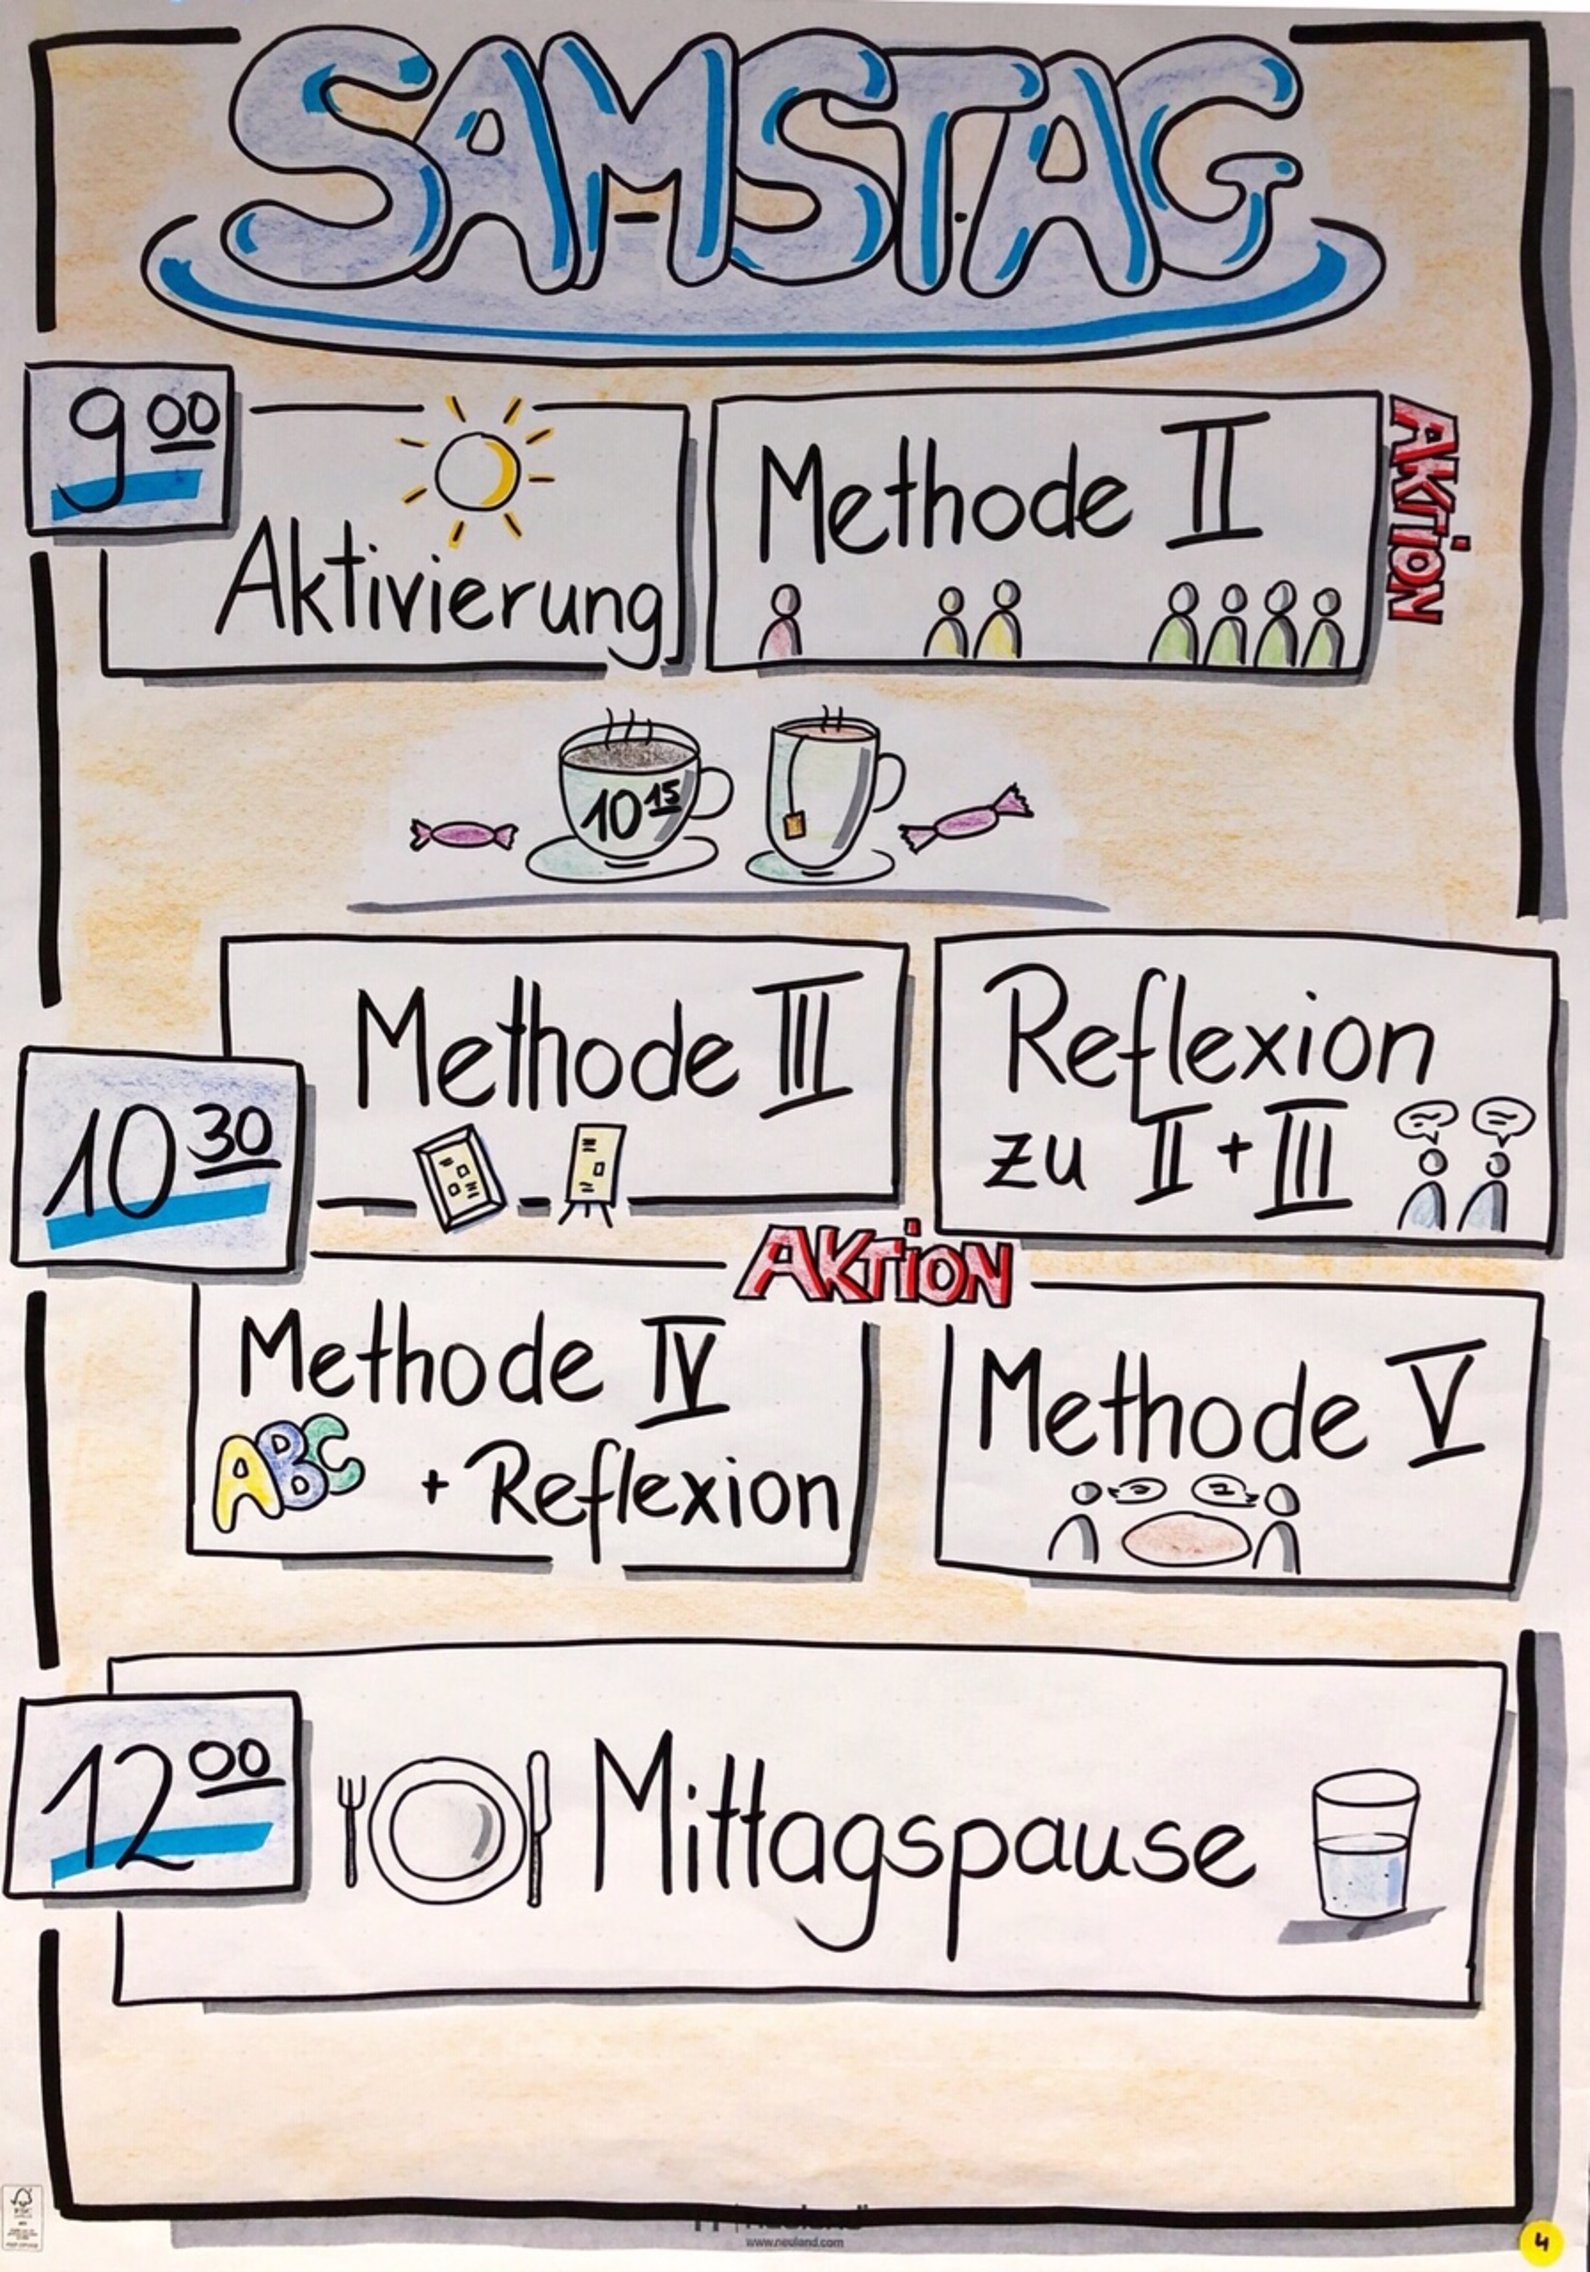 SAMSTAG
9 00
Aktivierung
Methode II
AKTiON
10 15
10 30
Methode III
Reflexion
zu II + III
AKTiON
Methode IV
ABC + Reflexion
Methode V
12 00
Mittagspause
www.neuland.com
4